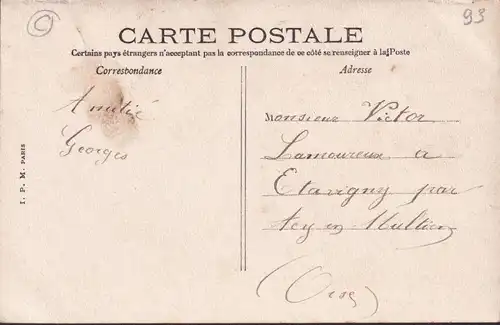 C
93
CARTE POSTALE
Certains pays étrangers n'acceptent pas la correspondance de ce côté se renseigner à la Poste
Correspondance
Adresse
Amitié
Georges
Monsieur Victor
Lamoureux a
Etavigny par
Acy en Multien
(Oise)
I. P. M. PARIS